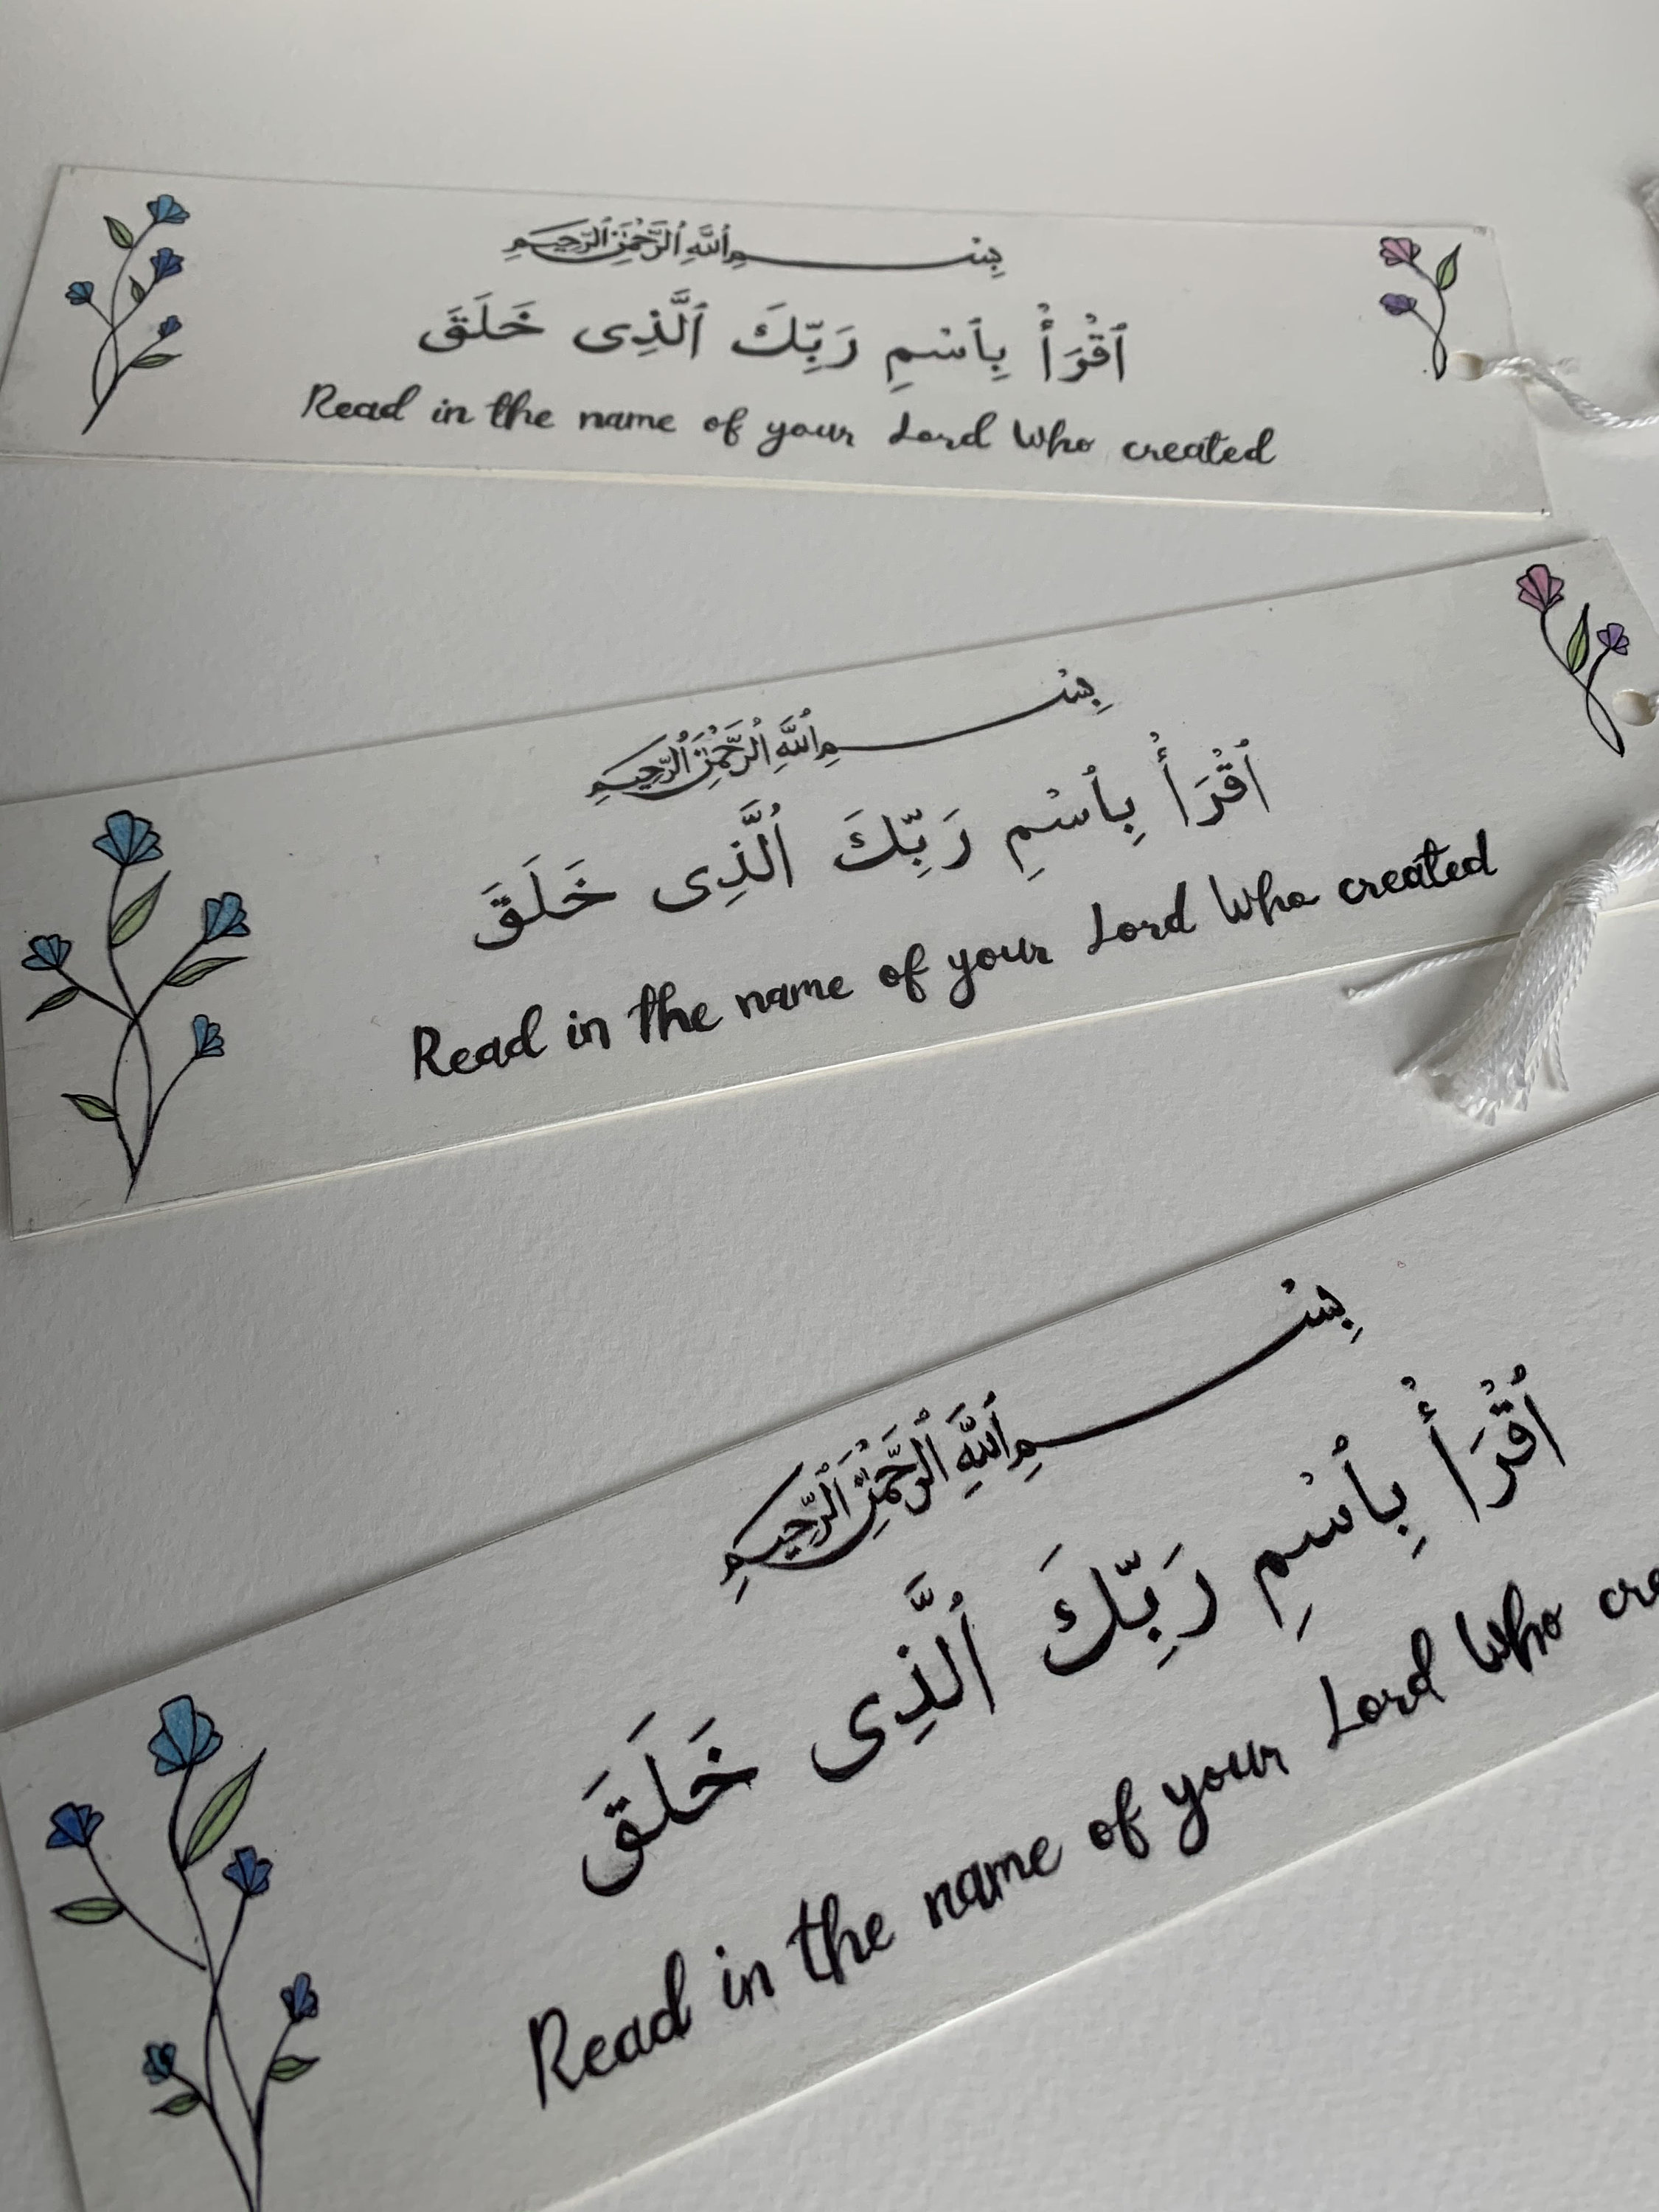 بِسْمِ ٱللَّهِ ٱلرَّحْمَٰنِ ٱلرَّحِيمِ
ٱقْرَأْ بِٱسْمِ رَبِّكَ ٱلَّذِى خَلَقَ
Read in the name of your Lord Who created
بِسْمِ ٱللَّهِ ٱلرَّحْمَٰنِ ٱلرَّحِيمِ
ٱقْرَأْ بِٱسْمِ رَبِّكَ ٱلَّذِى خَلَقَ
Read in the name of your Lord Who created
بِسْمِ ٱللَّهِ ٱلرَّحْمَٰنِ ٱلرَّحِيمِ
ٱقْرَأْ بِٱسْمِ رَبِّكَ ٱلَّذِى خَلَقَ
Read in the name of your Lord Who cre